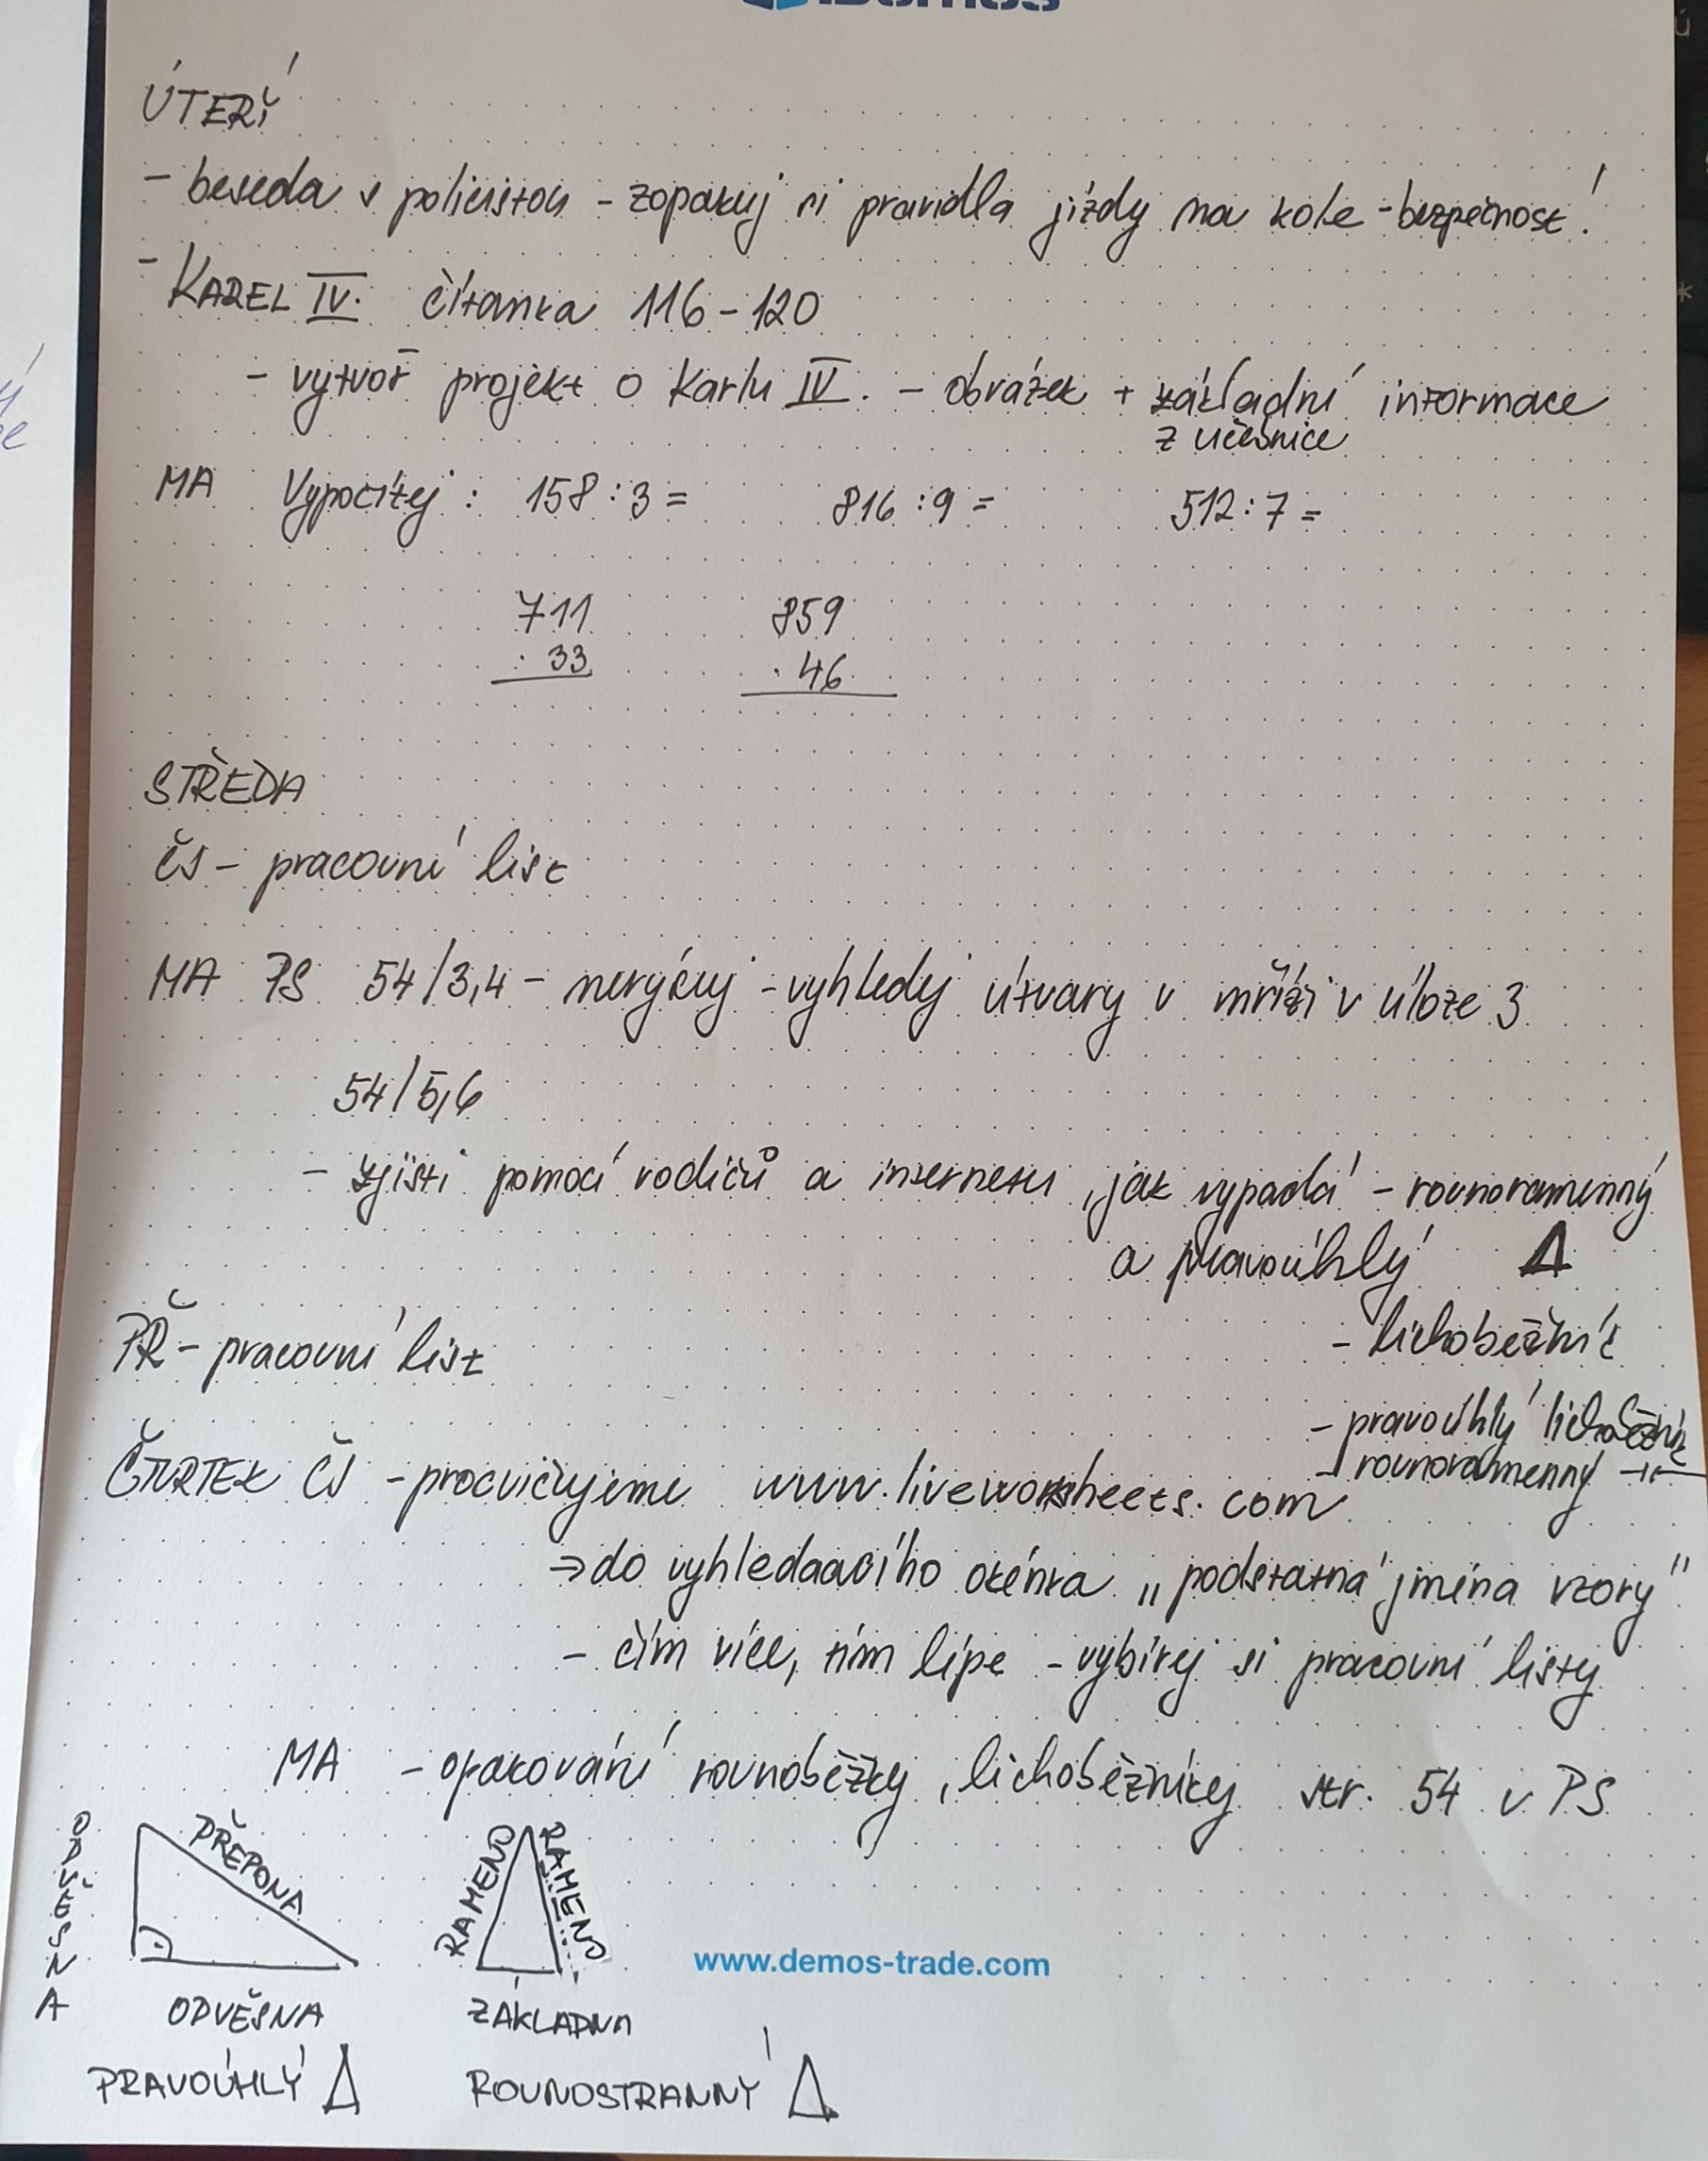 Demos
ÚTERÝ
- beseda s policistou - zopakuj si pravidla jízdy na kole - bezpečnost!
- KAREL IV. čítanka 116 - 120
- vytvoř projekt o Karlu IV. - obrázek + základní informace
z učebnice
MA Vypočítej : 158 : 3 = 816 : 9 = 512 : 7 =
711 859
. 33 . 46
STŘEDA
ČJ - pracovní list
MA PS 54/3,4 - nerýsuj - vyhledej útvary v mříži v úloze 3
54/5,6
- zjisti pomocí rodičů a internetu, jak vypadá - rovnoramenný
a pravoúhlý Δ
- lichoběžník
PŘ - pracovní list
- pravoúhlý lichoběžník
- rovnoramenný -11-
ČTVRTEK ČJ - procvičujeme www.liveworksheets.com
⇒ do vyhledaacího okénka „podstatná jména vzory"
- čím více, tím lépe - vybírej si pracovní listy
MA - opakování rovnoběžky, lichoběžníky str. 54 v PS
ODVĚSNA PŘEPONA RAMENO RAMENO
www.demos-trade.com
ODVĚSNA ZÁKLADNA
PRAVOÚHLÝ Δ ROVNOSTRANNÝ Δ